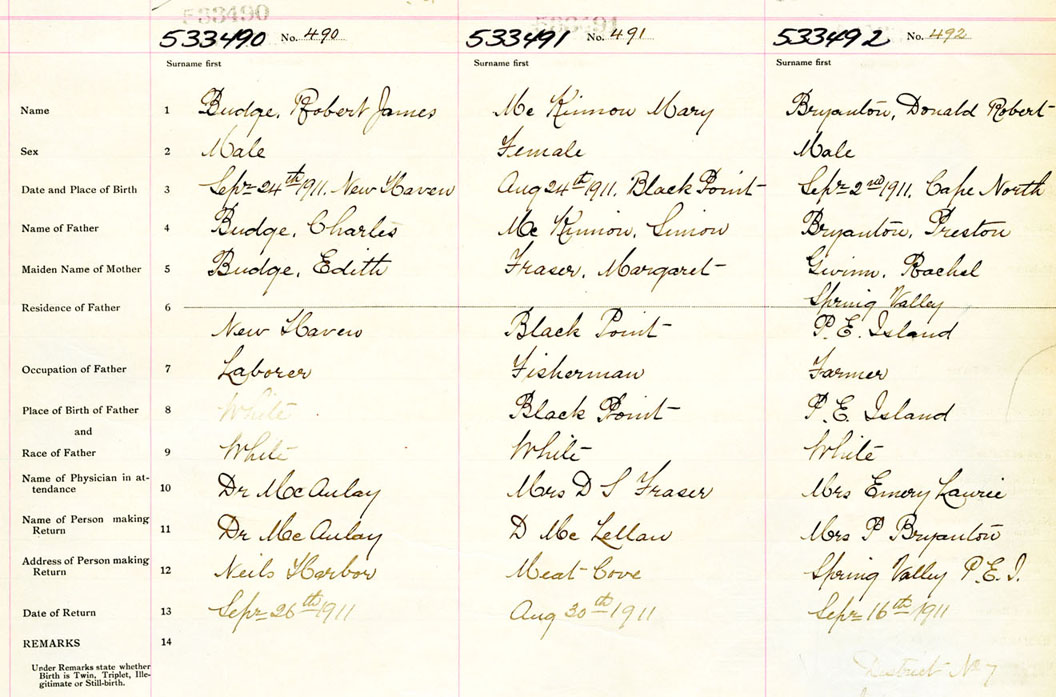 533490 533491
533490 No. 490 533491 No. 491 533492 No. 492
Surname first Surname first Surname first
Name 1 Budge, Robert James Mc Kinnon Mary Bryanton, Donald Robert
Sex 2 Male Female Male
Date and Place of Birth 3 Sepr 24th 1911, New Haven Aug 24th 1911, Black Point Sepr 2nd 1911, Cape North
Name of Father 4 Budge, Charles Mc Kinnon, Simon Bryanton, Preston
Maiden Name of Mother 5 Budge, Edith Fraser, Margaret Gwinn, Rachel
Spring Valley
Residence of Father 6 New Haven Black Point P. E. Island
Occupation of Father 7 Laborer Fisherman Farmer
Place of Birth of Father 8 White Black Point P. E. Island
and
Race of Father 9 White White White
Name of Physician in at-
tendance 10 Dr McAulay Mrs D S Fraser Mrs Emery Laurie
Name of Person making
Return 11 Dr McAulay D Mc Lellan Mrs P Bryanton
Address of Person making
Return 12 Neils Harbor Meat Cove Spring Valley P.E.I.
Date of Return 13 Sepr 26th 1911 Aug 30th 1911 Sepr 16th 1911
REMARKS 14
Under Remarks state whether
Birth is Twin, Triplet, Ille-
gitimate or Still-birth.
District No 7